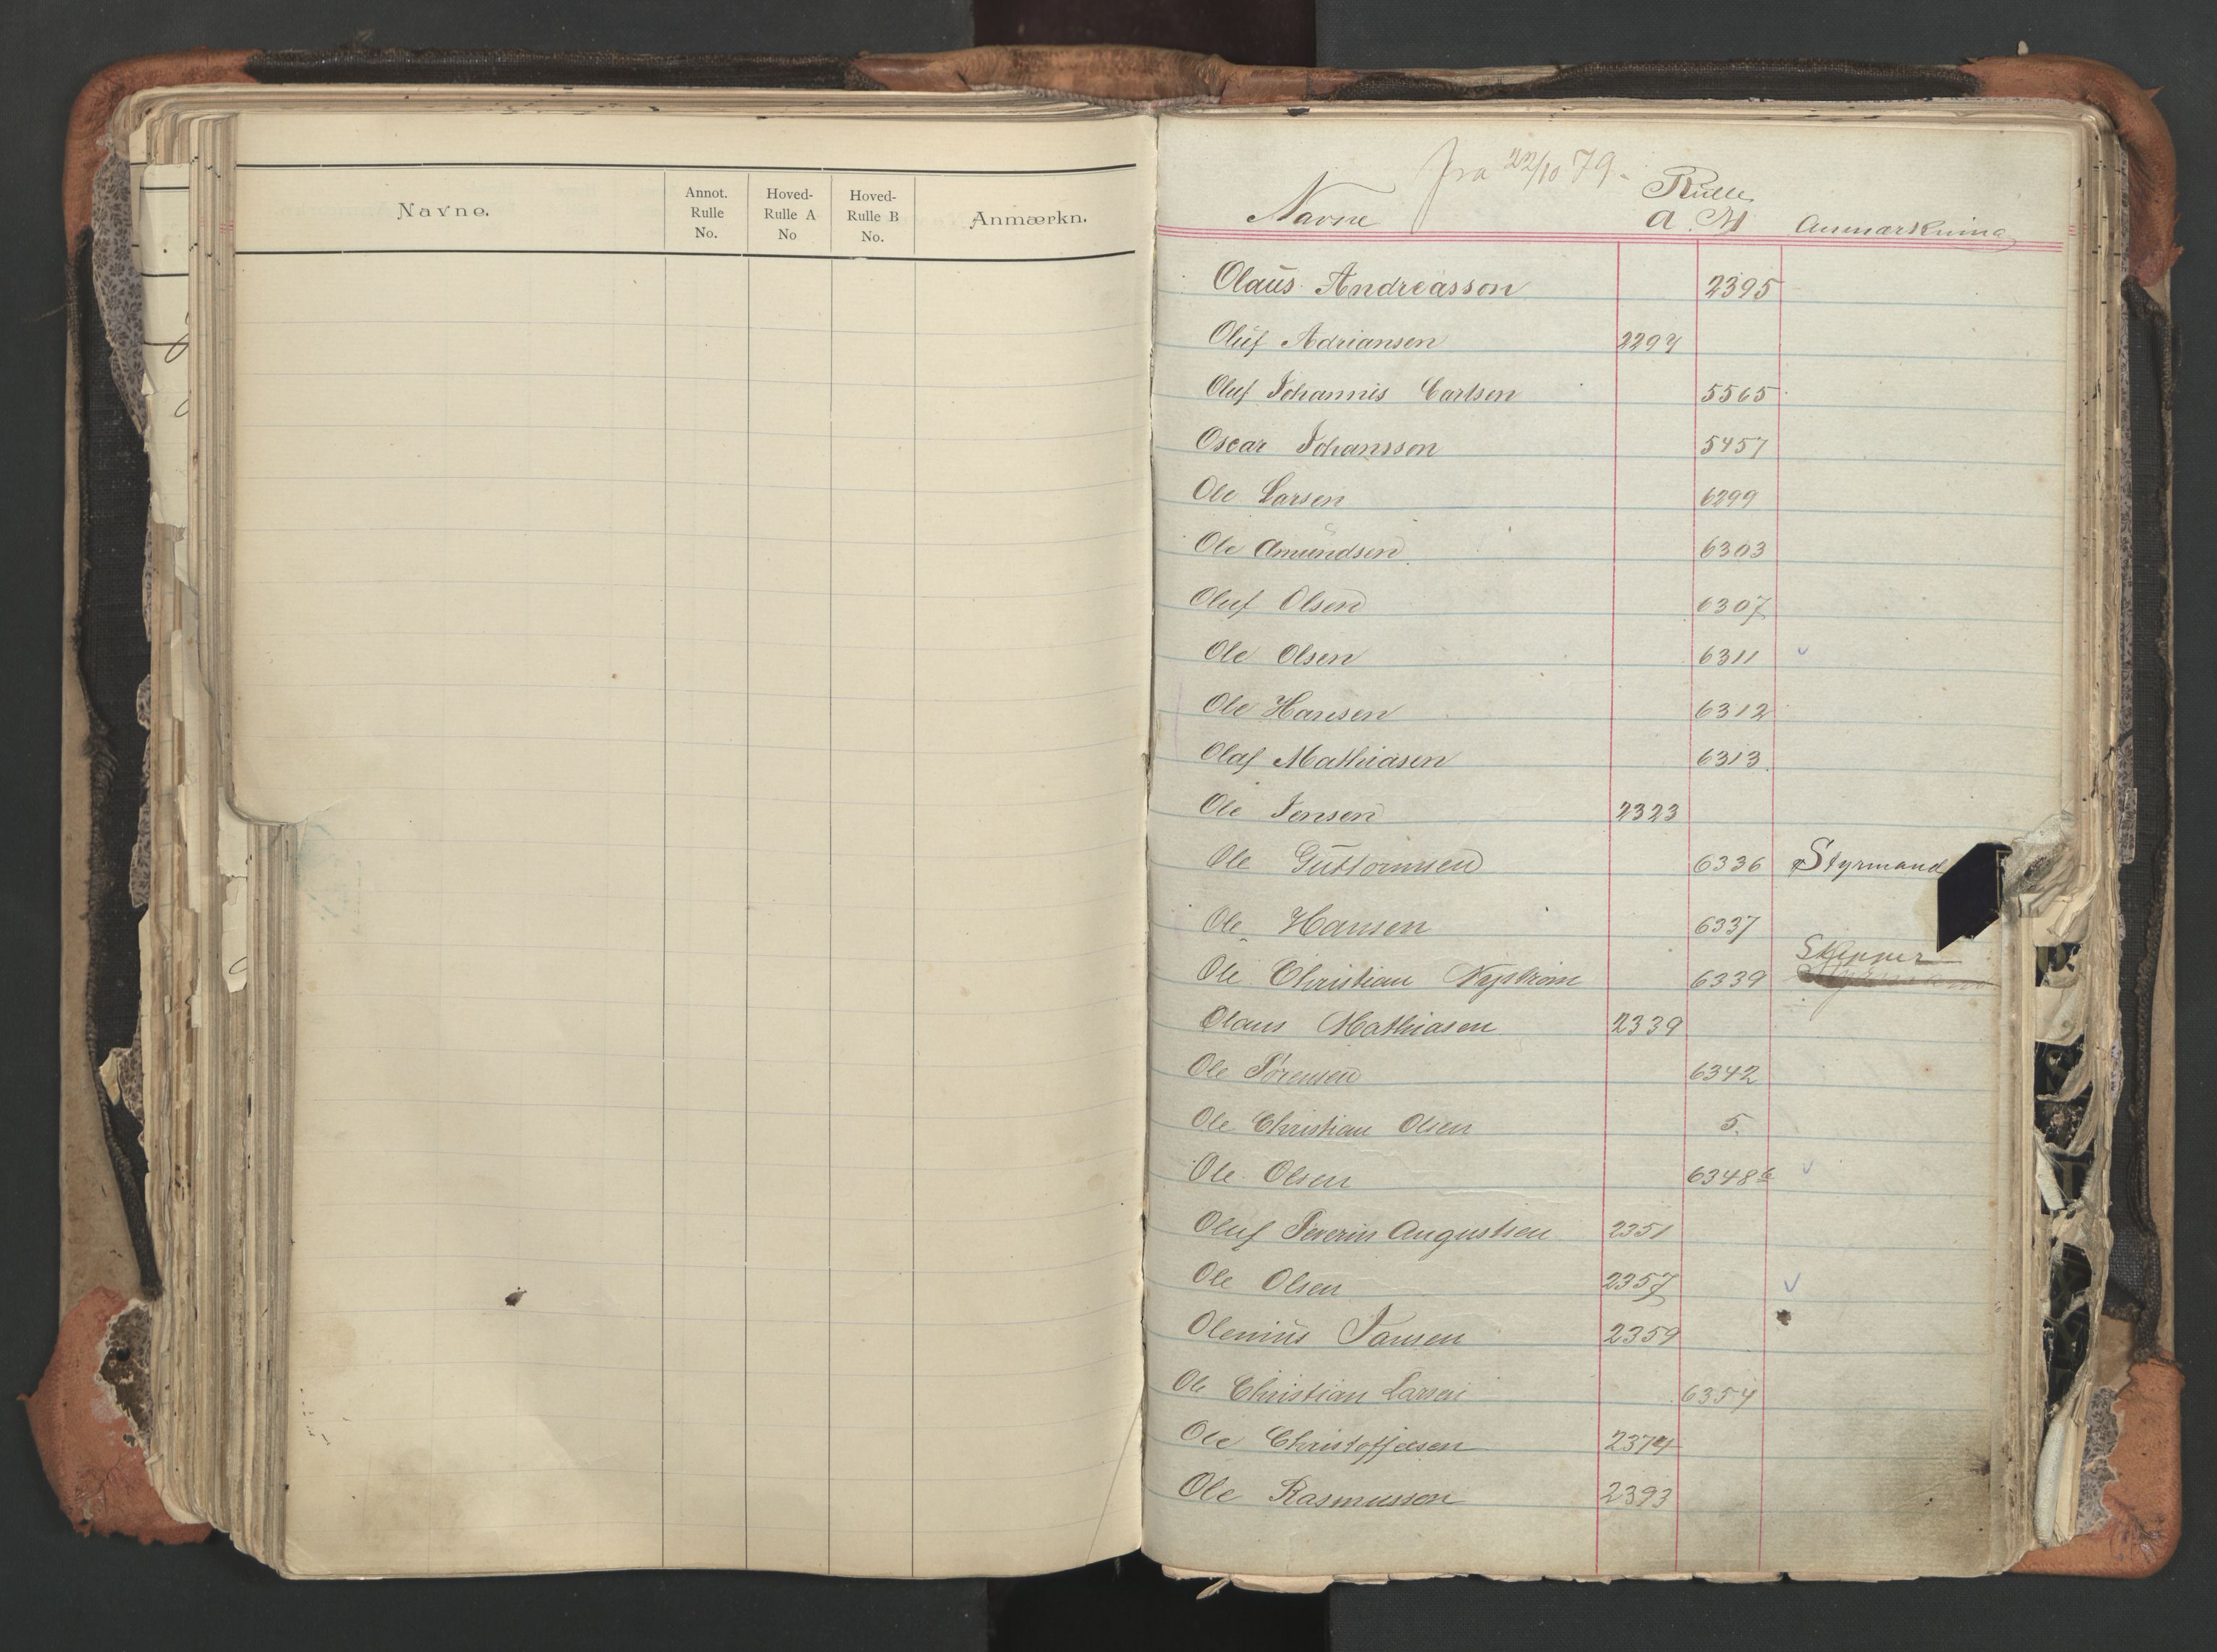 Navne.
Annot. Rulle No.
Hoved- Rulle A No
Hoved- Rulle B No.
Anmærkn.
fra 22/10 79.
Navne Rulle
A. M Anmærkning
Olaus Andreasson 2395
Oluf Adriansen 2297
Oluf Johannis Carlsen 5565
Oscar Johansson 5457
Ole Larsen 6299
Ole Amundsen 6303
Oluf Olsen 6307
Ole Olsen 6311 v
Ole Hansen 6312
Olaf Mathiasen 6313.
Ole Jensen 2323
Ole Guttormsen 6336 Styrmand
Ole Hansen 6337
Skipper
Ole Christian Nystrøm 6339
Olaus Mathiasen 2339
Ole Sørensen 6342
Ole Christian Olsen 5.
Ole Olsen 6348 v
Oluf Severin Augustsen 2351
Ole Olsen 2357 v
Olenius Jansen 2359
Ole Christian Larsen 6354
Ole Christoffersen 2374
Ole Rasmusson 2393